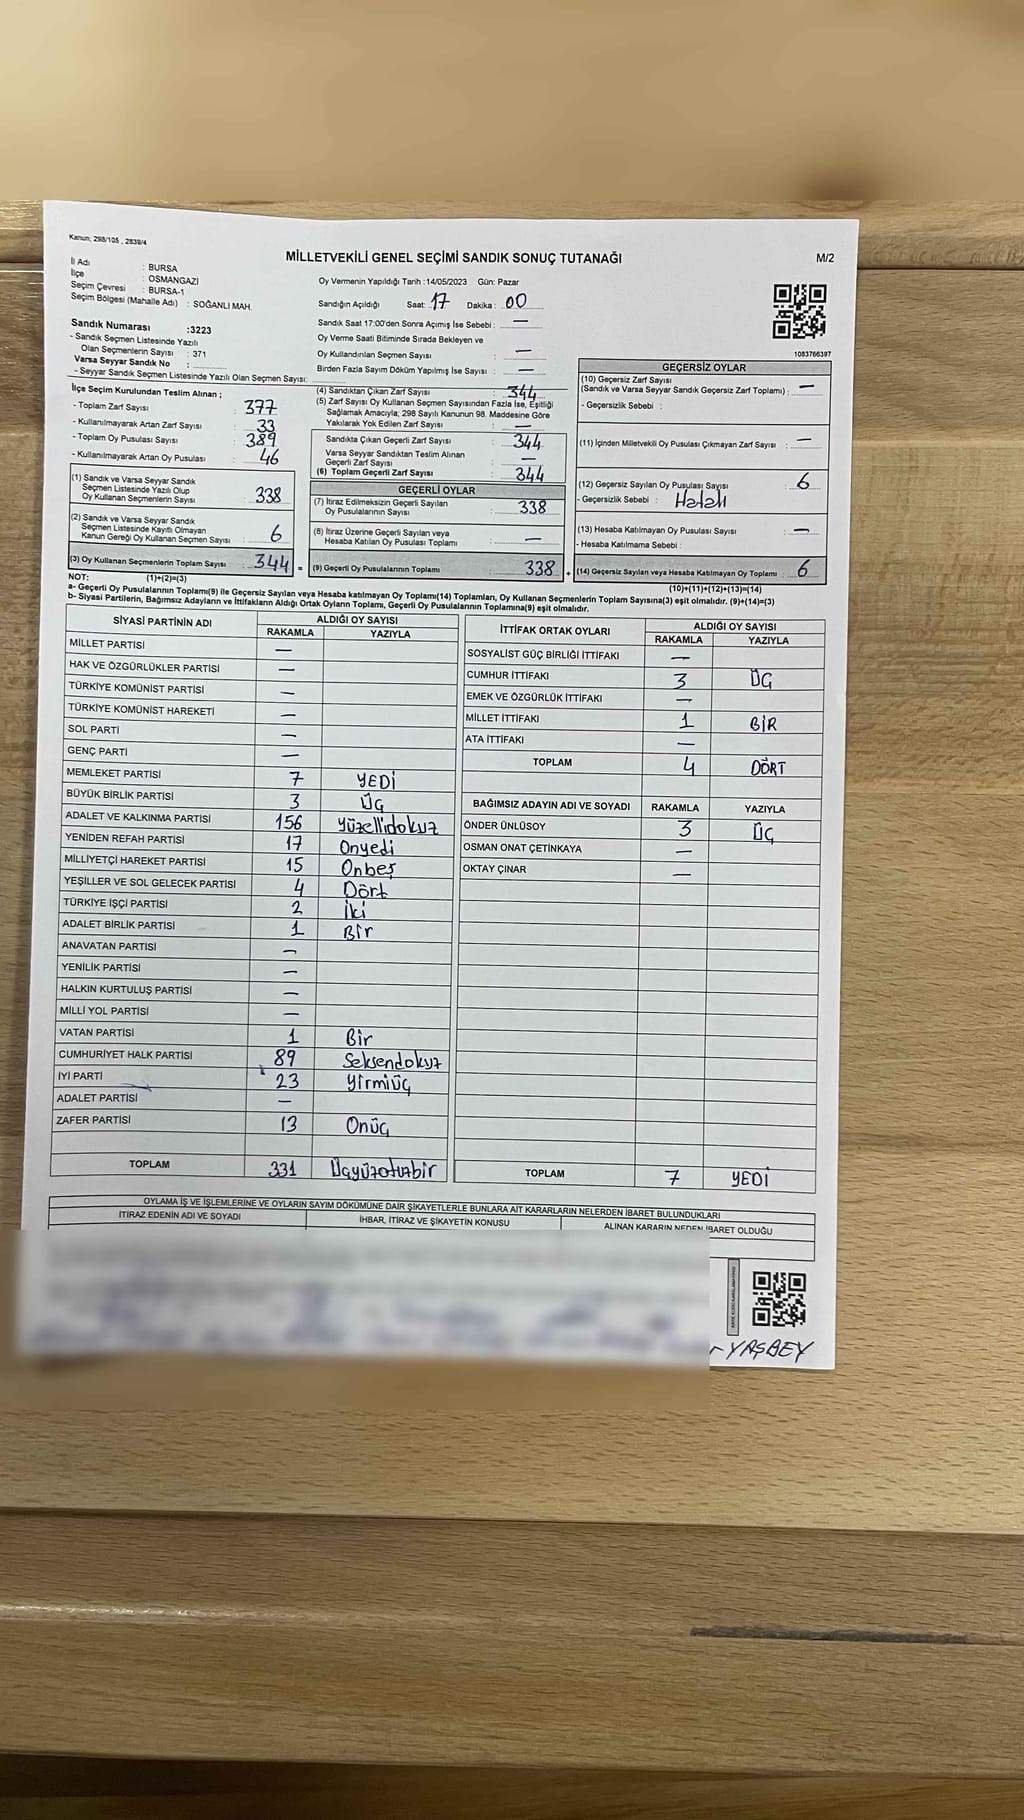 Kanun; 298/105 , 2839/4
MİLLETVEKİLİ GENEL SEÇİMİ SANDIK SONUÇ TUTANAĞI
M/2
İl Adı : BURSA
İlçe : OSMANGAZİ
Seçim Çevresi : BURSA-1
Seçim Bölgesi (Mahalle Adı) : SOĞANLI MAH.
Sandık Numarası :3223
- Sandık Seçmen Listesinde Yazılı
Olan Seçmenlerin Sayısı : 371
Varsa Seyyar Sandık No :
- Seyyar Sandık Seçmen Listesinde Yazılı Olan Seçmen Sayısı:
Oy Vermenin Yapıldığı Tarih :14/05/2023 Gün: Pazar
Sandığın Açıldığı Saat: 17 Dakika : 00
Sandık Saat 17:00'den Sonra Açımış İse Sebebi : —
Oy Verme Saati Bitiminde Sırada Bekleyen ve
Oy Kullandırılan Seçmen Sayısı : —
Birden Fazla Sayım Döküm Yapılmış İse Sayısı : —
1083766397
İlçe Seçim Kurulundan Teslim Alınan ;
- Toplam Zarf Sayısı : 377
- Kullanılmayarak Artan Zarf Sayısı : 33
- Toplam Oy Pusulası Sayısı : 389
- Kullanılmayarak Artan Oy Pusulası : 46
(1) Sandık ve Varsa Seyyar Sandık
Seçmen Listesinde Yazılı Olup
Oy Kullanan Seçmenlerin Sayısı : 338
(2) Sandık ve Varsa Seyyar Sandık
Seçmen Listesinde Kayıtlı Olmayan
Kanun Gereği Oy Kullanan Seçmen Sayısı : 6
(3) Oy Kullanan Seçmenlerin Toplam Sayısı : 344 =
(4) Sandıktan Çıkan Zarf Sayısı : 344
(5) Zarf Sayısı Oy Kullanan Seçmen Sayısından Fazla İse, Eşitliği
Sağlamak Amacıyla; 298 Sayılı Kanunun 98. Maddesine Göre
Yakılarak Yok Edilen Zarf Sayısı : —
Sandıkta Çıkan Geçerli Zarf Sayısı : 344
Varsa Seyyar Sandıktan Teslim Alınan
Geçerli Zarf Sayısı : —
(6) Toplam Geçerli Zarf Sayısı : 344
GEÇERLİ OYLAR
(7) İtiraz Edilmeksizin Geçerli Sayılan
Oy Pusulalarının Sayısı : 338
(8) İtiraz Üzerine Geçerli Sayılan veya
Hesaba Katılan Oy Pusulası Toplamı : —
(9) Geçerli Oy Pusulalarının Toplamı : 338 +
GEÇERSİZ OYLAR
(10) Geçersiz Zarf Sayısı
(Sandık ve Varsa Seyyar Sandık Geçersiz Zarf Toplamı) : —
- Geçersizlik Sebebi :
(11) İçinden Milletvekili Oy Pusulası Çıkmayan Zarf Sayısı : —
(12) Geçersiz Sayılan Oy Pusulası Sayısı : 6
- Geçersizlik Sebebi : Hatalı
(13) Hesaba Katılmayan Oy Pusulası Sayısı : —
- Hesaba Katılmama Sebebi :
(14) Geçersiz Sayılan veya Hesaba Katılmayan Oy Toplamı : 6
NOT: (1)+(2)=(3) (10)+(11)+(12)+(13)=(14)
a- Geçerli Oy Pusulalarının Toplamı(9) ile Geçersiz Sayılan veya Hesaba katılmayan Oy Toplamı(14) Toplamları, Oy Kullanan Seçmenlerin Toplam Sayısına(3) eşit olmalıdır. (9)+(14)=(3)
b- Siyasi Partilerin, Bağımsız Adayların ve İttifakların Aldığı Ortak Oyların Toplamı, Geçerli Oy Pusulalarının Toplamına(9) eşit olmalıdır.
SİYASİ PARTİNİN ADI ALDIĞI OY SAYISI
RAKAMLA YAZIYLA
MİLLET PARTİSİ —
HAK VE ÖZGÜRLÜKLER PARTİSİ —
TÜRKİYE KOMÜNİST PARTİSİ —
TÜRKİYE KOMÜNİST HAREKETİ —
SOL PARTİ —
GENÇ PARTİ —
MEMLEKET PARTİSİ 7 YEDİ
BÜYÜK BİRLİK PARTİSİ 3 ÜÇ
ADALET VE KALKINMA PARTİSİ 156 Yüzellidokuz
YENİDEN REFAH PARTİSİ 17 Onyedi
MİLLİYETÇİ HAREKET PARTİSİ 15 Onbeş
YEŞİLLER VE SOL GELECEK PARTİSİ 4 Dört
TÜRKİYE İŞÇİ PARTİSİ 2 İki
ADALET BİRLİK PARTİSİ 1 Bir
ANAVATAN PARTİSİ —
YENİLİK PARTİSİ —
HALKIN KURTULUŞ PARTİSİ —
MİLLİ YOL PARTİSİ —
VATAN PARTİSİ 1 Bir
CUMHURİYET HALK PARTİSİ 89 Seksendokuz
İYİ PARTİ 23 Yirmiüç
ADALET PARTİSİ —
ZAFER PARTİSİ 13 Onüç
TOPLAM 331 Üçyüzotuzbir
İTTİFAK ORTAK OYLARI ALDIĞI OY SAYISI
RAKAMLA YAZIYLA
SOSYALİST GÜÇ BİRLİĞİ İTTİFAKI —
CUMHUR İTTİFAKI 3 ÜÇ
EMEK VE ÖZGÜRLÜK İTTİFAKI —
MİLLET İTTİFAKI 1 BİR
ATA İTTİFAKI —
TOPLAM 4 DÖRT
BAĞIMSIZ ADAYIN ADI VE SOYADI RAKAMLA YAZIYLA
ÖNDER ÜNLÜSOY 3 ÜÇ
OSMAN ONAT ÇETİNKAYA —
OKTAY ÇINAR —
TOPLAM 7 YEDİ
OYLAMA İŞ VE İŞLEMLERİNE VE OYLARIN SAYIM DÖKÜMÜNE DAİR ŞİKAYETLERLE BUNLARA AİT KARARLARIN NELERDEN İBARET BULUNDUKLARI
İTİRAZ EDENİN ADI VE SOYADI İHBAR, İTİRAZ VE ŞİKAYETİN KONUSU ALINAN KARARIN NEDEN İBARET OLDUĞU
YAŞBEY